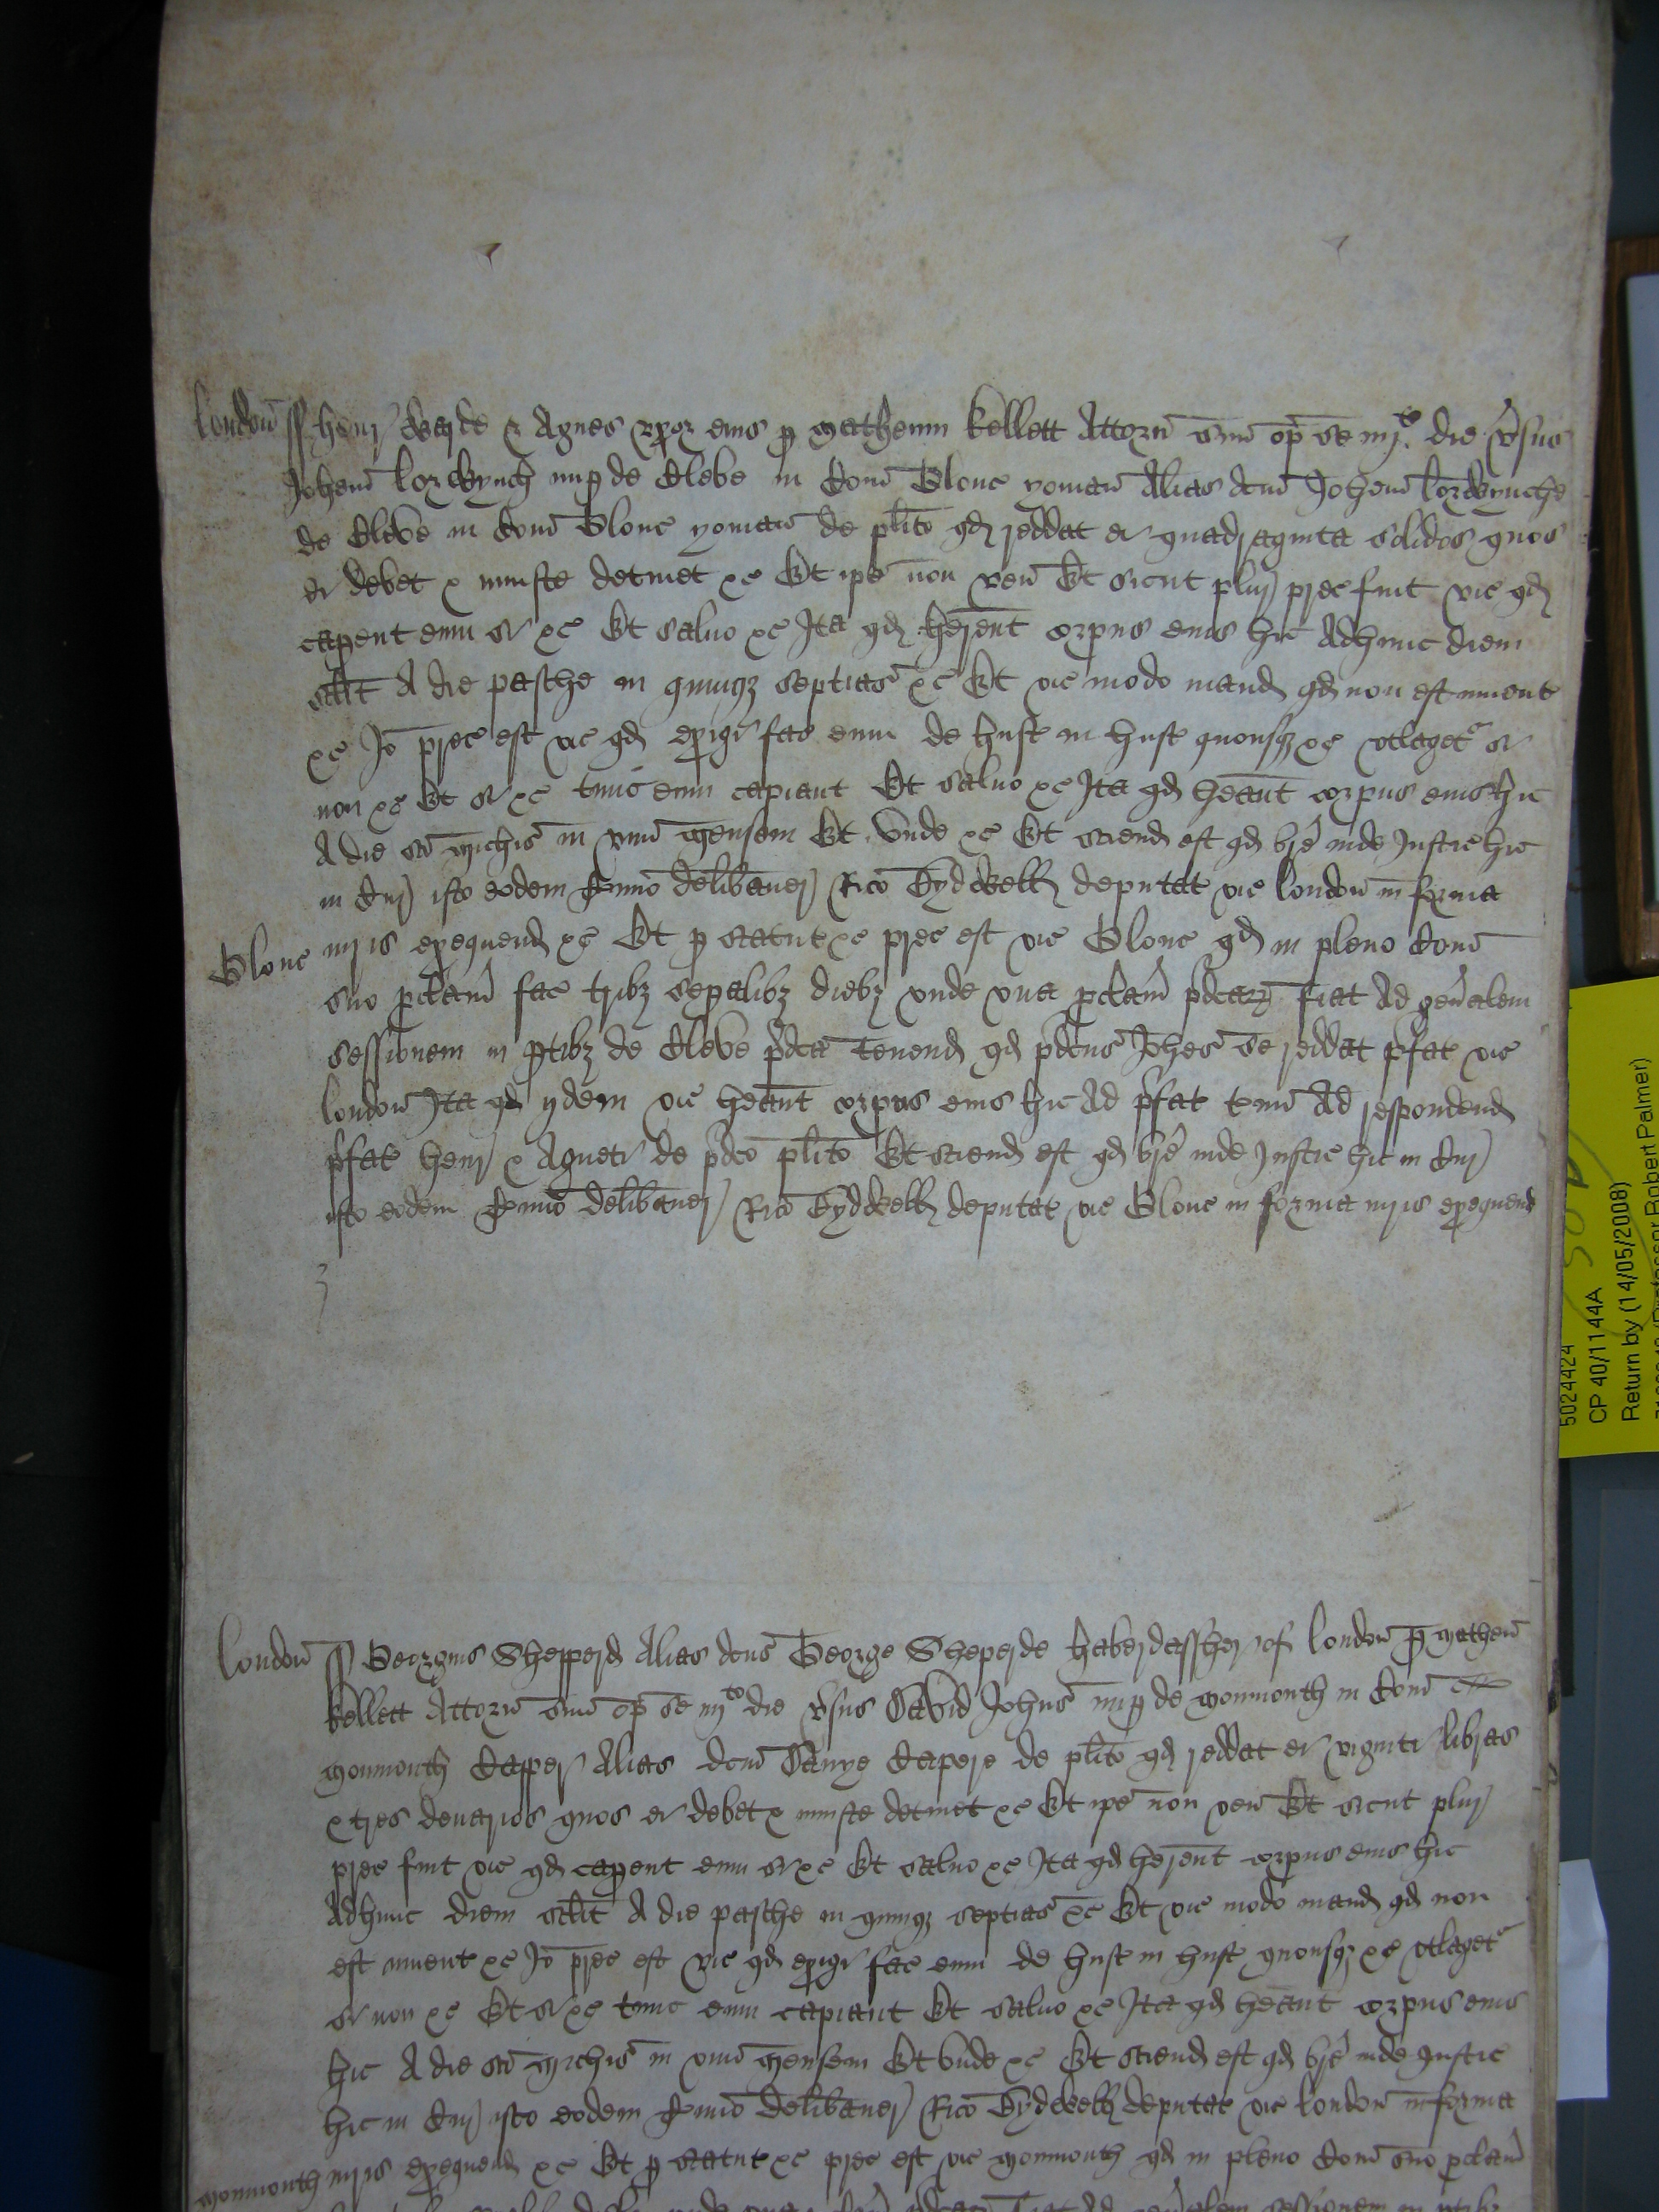 london ss henr Warde & Agnes uxor eius p Matheum kellett Attorn suu op se iiijto die vsus
Johem lorwynch nup de Cleve in Com Glouc yoman Alias dcm Johem lorwynche
de Cleve in Com Glouc yoman de plito qd reddat ei quadraginta solidos quos
ei debet & iniuste detinet &c Et ipe non ven Et sicut plur prec fuit vic qd
capent eum si &c Et salvo &c Ita qd herent corpus eius hic Adhunc diem
scilt A die pasche in quinq septias &c Et vic modo mand qd non est invent
&c Jo prec est vic qd exigi fac eum de hust in hust quousq &c utlaget si
non &c Et si &c tunc eum capiant Et salvo &c Ita qd heant corpus eius hic
A die sci Michis in unu Mensem Et Unde &c Et sciend est qd bre inde Justic hic
in Cur isto eodem Tmio delibaver Rico deputat vic london in forma
Glouc iuris exequend &c Et p statut &c prec est vic Glouc qd in pleno Com
suo pclam fac tribz sepalibz diebz unde una pclam pdcarz fiat Ad genalem
sessionem in ptibz de Cleve pdca tenend qd pdcus Johes se reddat pfat vic
london Ita qd ydem vic heant corpus eius hic Ad pfat tmu Ad respondend
pfat henr & Agneti de pdco plito Et sciend est qd bre inde Justic hic in Cur
isto eodem Tmio delibaver Rico deputat vic Glouc in forma iuris exequend
london ss Georgius Shepperd Alias dcus George Sheperde haberdassher of london p Matheu
kellett Attorn suu op se iiijto die vsus David Johns nup de Monmouth in Com
Monmouth Capper Alias dcm Capere de plito qd reddat ei viginti libras
& tres denarios quos ei debet & iniuste detinet &c Et ipe non ven Et sicut plur
prec fuit vic qd capent eum si &c Et salvo &c Ita qd herent corpus eius hic
Adhunc diem scilt A die pasche in quinq septias &c Et vic modo mand qd non
est invent &c Jo prec est vic qd exigi fac eum de hust in hust quousq &c utlaget
si non &c Et si &c tunc eum capiant Et salvo &c Ita qd heant corpus eius
hic A die sci Michis in unu Mensem Et Unde &c Et sciend est qd bre inde Justic
hic in Cur isto eodem Tmio delibaver Rico deputat vic london in forma
Monmouth iuris exequend &c Et p statut &c prec est vic Monmouth qd in pleno Com suo pclam
5024424
CP 40/1144A
Return by (14/05/2008)
(Professor Robert Palmer)